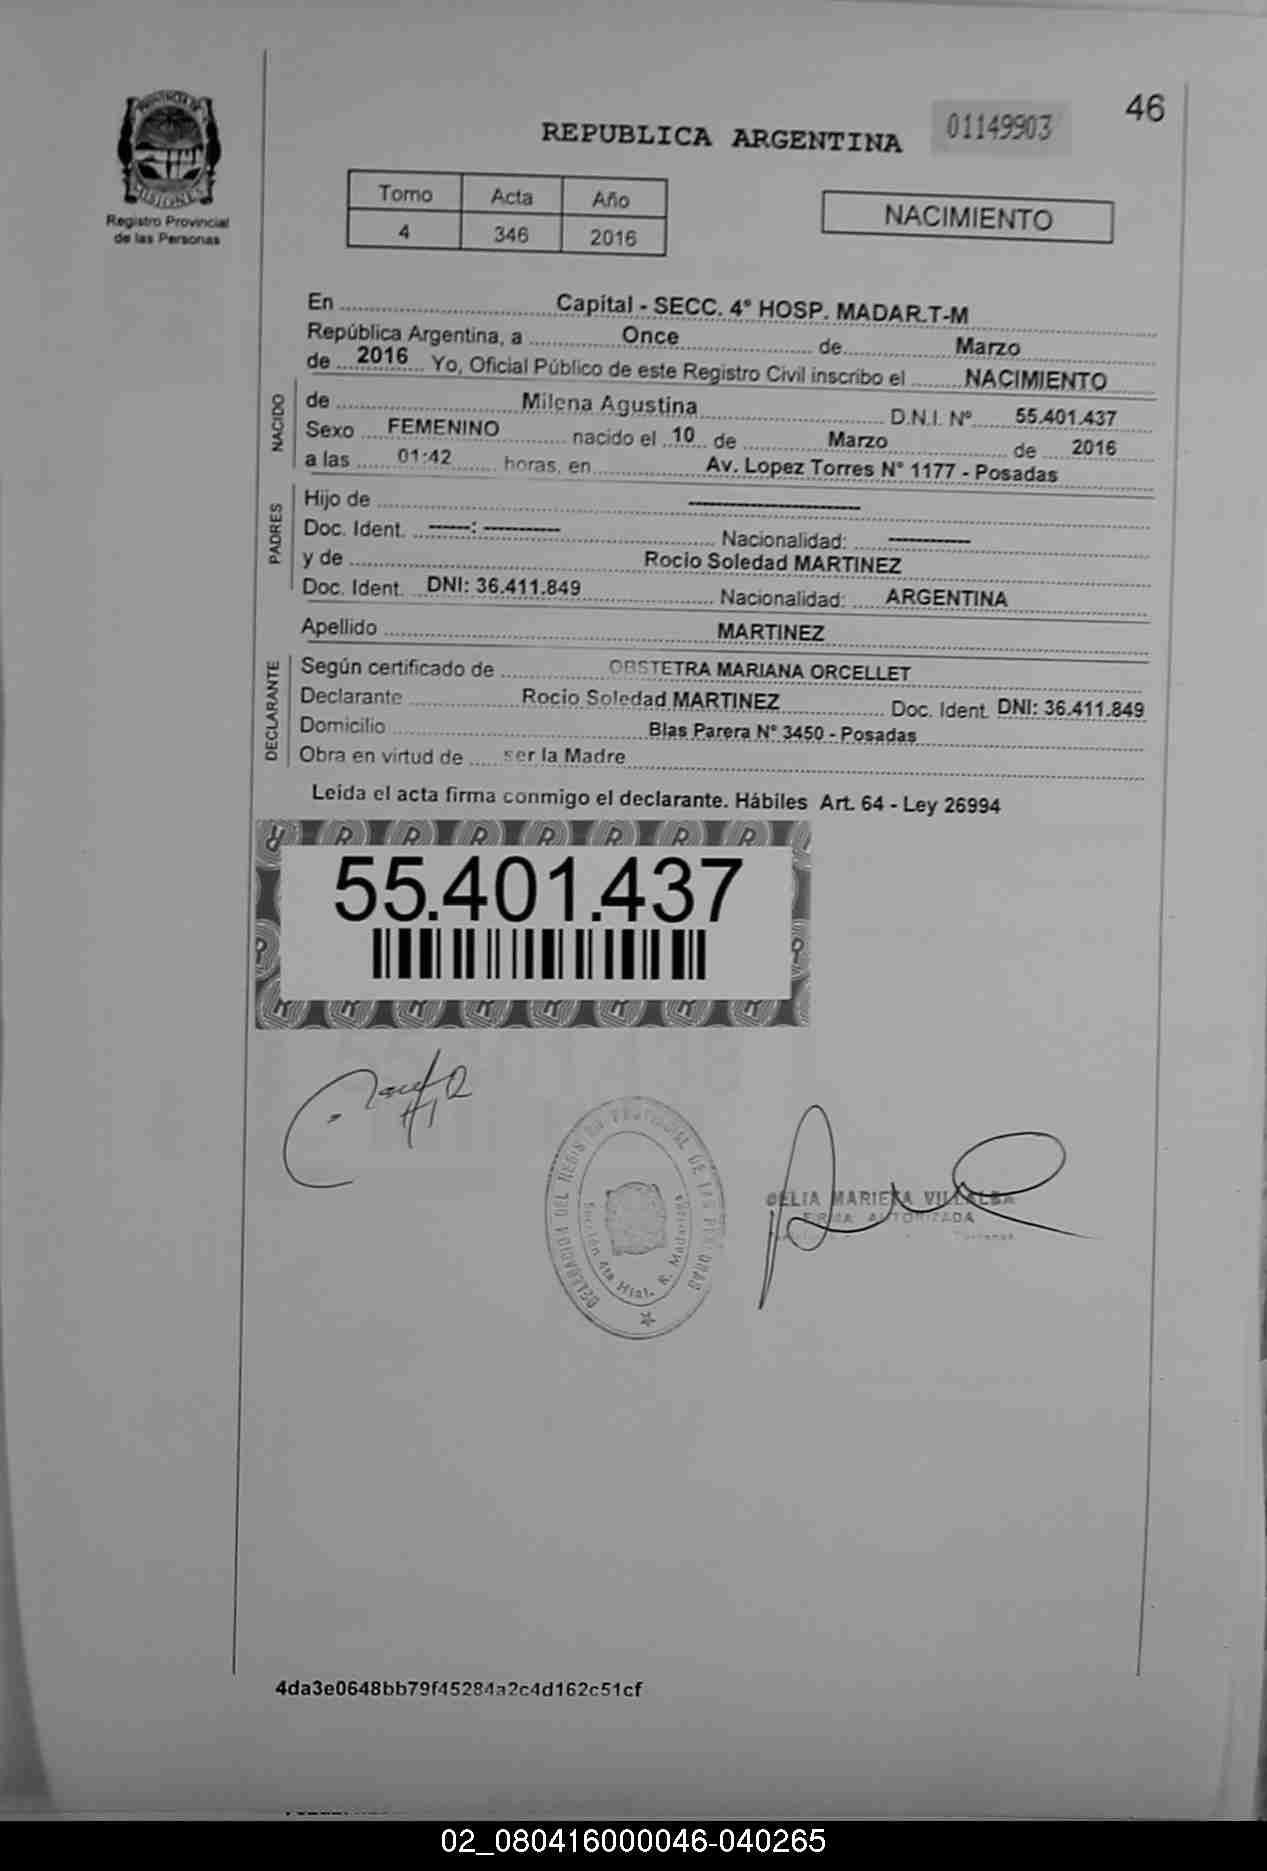 46
01149903
REPUBLICA ARGENTINA
PROVINCIA DE
MISIONES
Registro Provincial
de las Personas
Tomo Acta Año
4 346 2016
NACIMIENTO
En Capital - SECC. 4° HOSP. MADAR.T-M
República Argentina, a Once de Marzo
de 2016 Yo, Oficial Público de este Registro Civil inscribo el NACIMIENTO
NACIDO
de Milena Agustina D.N.I. Nº 55.401.437
Sexo FEMENINO nacido el 10 de Marzo de 2016
a las 01:42 horas, en Av. Lopez Torres N° 1177 - Posadas
PADRES
Hijo de ----------------------
Doc. Ident. -----: ---------- Nacionalidad: ----------
y de Rocio Soledad MARTINEZ
Doc. Ident. DNI: 36.411.849 Nacionalidad: ARGENTINA
Apellido MARTINEZ
DECLARANTE
Según certificado de OBSTETRA MARIANA ORCELLET
Declarante Rocio Soledad MARTINEZ Doc. Ident. DNI: 36.411.849
Domicilio Blas Parera N° 3450 - Posadas
Obra en virtud de ser la Madre
Leída el acta firma conmigo el declarante. Hábiles Art. 64 - Ley 26994
55.401.437
DELEGACION DEL REGISTRO PROVINCIAL DE LAS PERSONAS
Sección 4ta Htal. R. Madariaga
DELIA MARIELA VILLALBA
FIRMA AUTORIZADA
4da3e0648bb79f45284a2c4d162c51cf
02_080416000046-040265